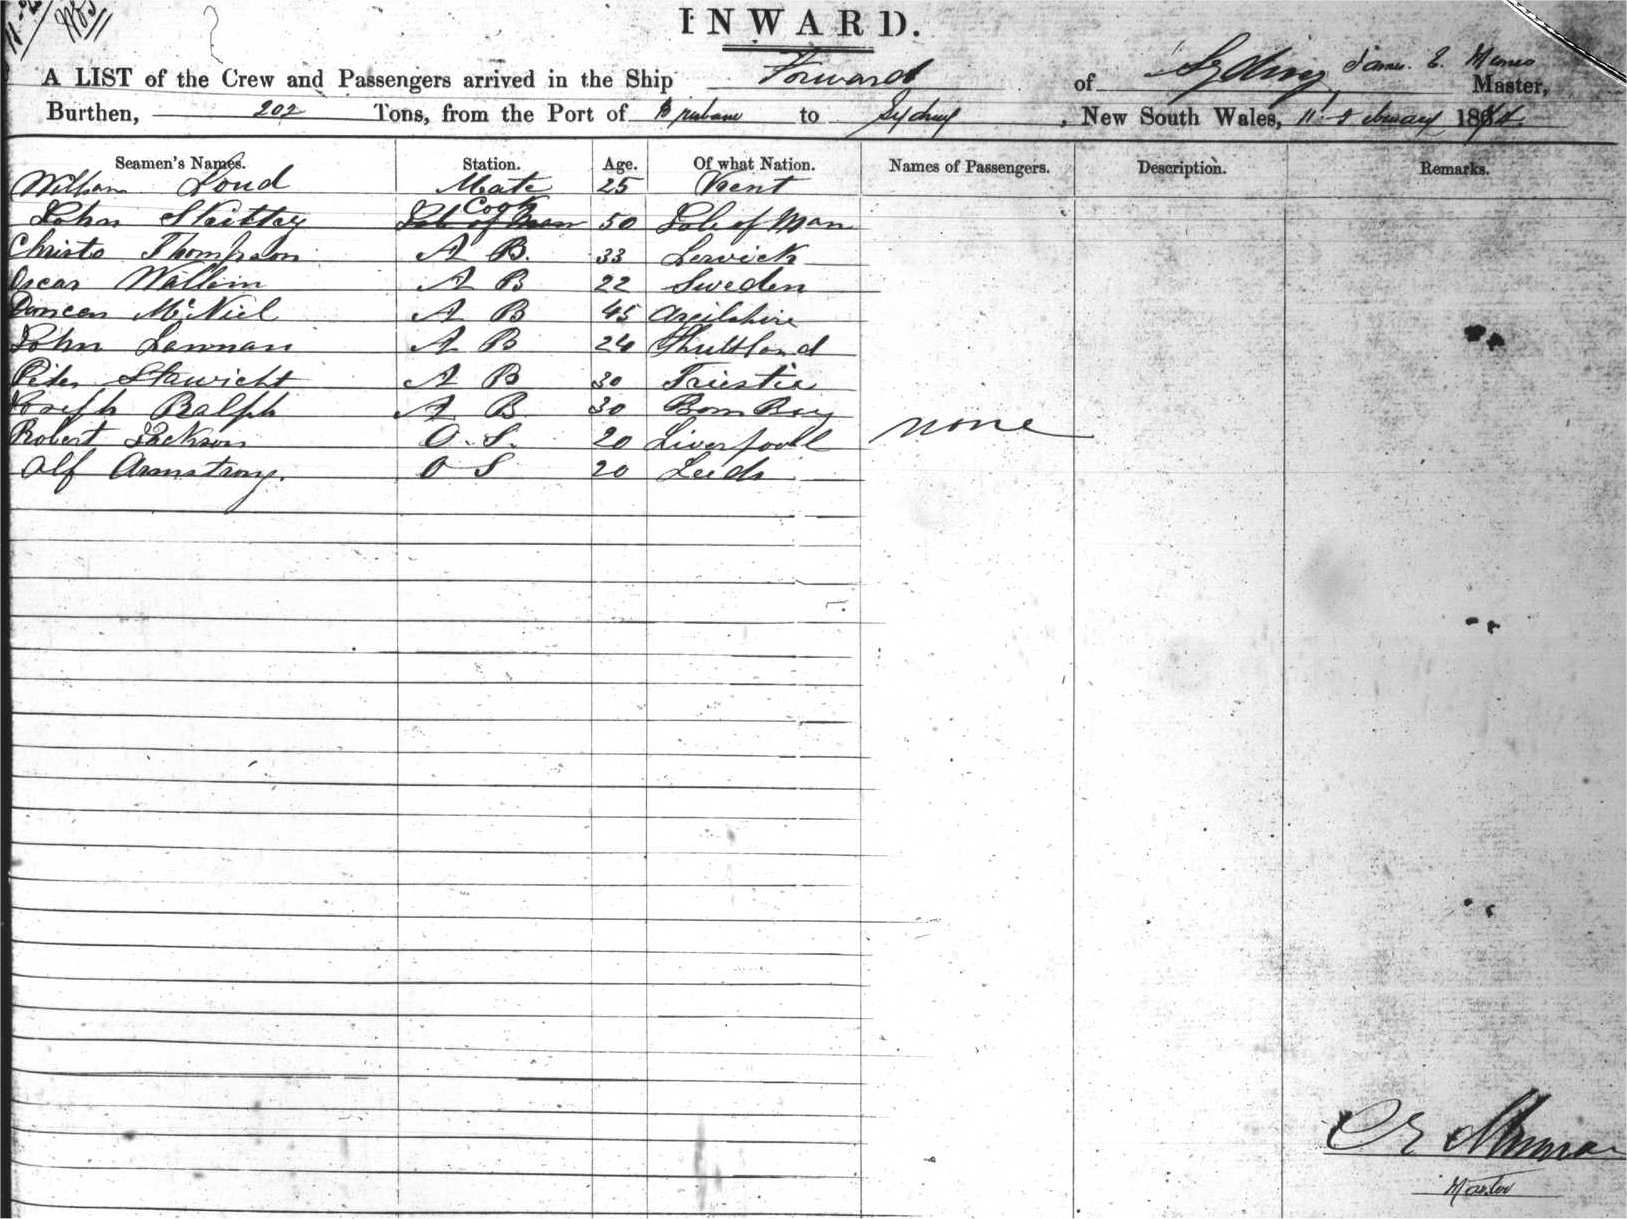 INWARD.
A LIST of the Crew and Passengers arrived in the Ship Forward of Sydney, James E. Master,
Burthen, 202 Tons, from the Port of Brisbane to Sydney, New South Wales, 11 February 187
Seamen's Names. Station. Age. Of what Nation. Names of Passengers. Description. Remarks.
William Loud Mate 25 Kent
John Cook 50 Isle of Man
Christo Thompson A B. 33 Lerwick
Oscar Wallin A B 22 Sweden
Duncan McNiel A B 45 Argilshire
John A B 24 Shettland
Peter A B 30 Triestie
Joseph Ralph A B 30 BomBay
Robert Jackson O. S. 20 Liverpool
none
Alf Armstrong. O S 20 Leeds
Master